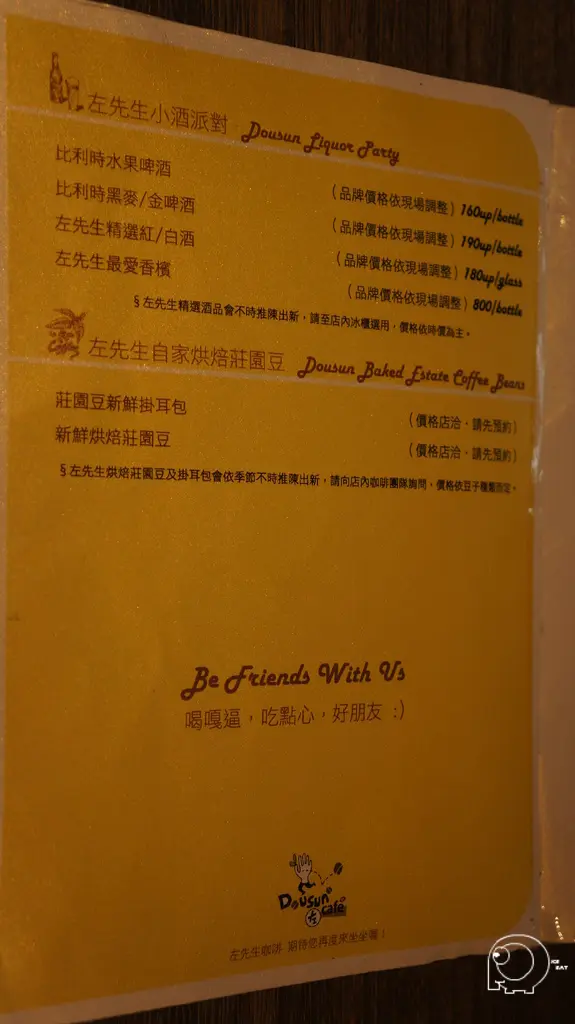 左先生小酒派對 Dousun Liquor Party
比利時水果啤酒 (品牌價格依現場調整) 160up/bottle
比利時黑麥/金啤酒 (品牌價格依現場調整) 190up/bottle
左先生精選紅/白酒 (品牌價格依現場調整) 180up/glass
左先生最愛香檳 (品牌價格依現場調整) 800/bottle
§左先生精選酒品會不時推陳出新，請至店內冰櫃選用，價格依時價為主。
左先生自家烘焙莊園豆 Dousun Baked Estate Coffee Beans
莊園豆新鮮掛耳包 (價格店洽、請先預約)
新鮮烘焙莊園豆 (價格店洽、請先預約)
§左先生烘焙莊園豆及掛耳包會依季節不時推陳出新，請向店內咖啡團隊詢問，價格依豆子種類而定。
Be Friends With Us
喝嘎逼，吃點心，好朋友 :)
Dousun
左 café
左先生咖啡 期待您再度來坐坐喔！
ICE
EAT